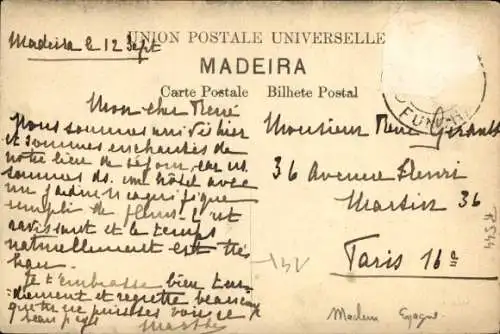 Madeira le 12 Sept
UNION POSTALE UNIVERSELLE
MADEIRA
Carte Postale Bilhete Postal
Mon cher René
Nous sommes arrivés hier
et sommes enchantés de
notre lieu de séjour, car ns
sommes ds un hôtel avec
un jardin magnifique
rempli de fleurs. C'est
ravissant et le temps
naturellement est très
beau.
Je t'embrasse bien ten-
drement et regrette beaucoup
que tu ne puisses voir ce
beau pays
Marthe
Monsieur René
36 Avenue Henri
Martin 36
Paris 16e
FUNCHAL
Madeira Espagne